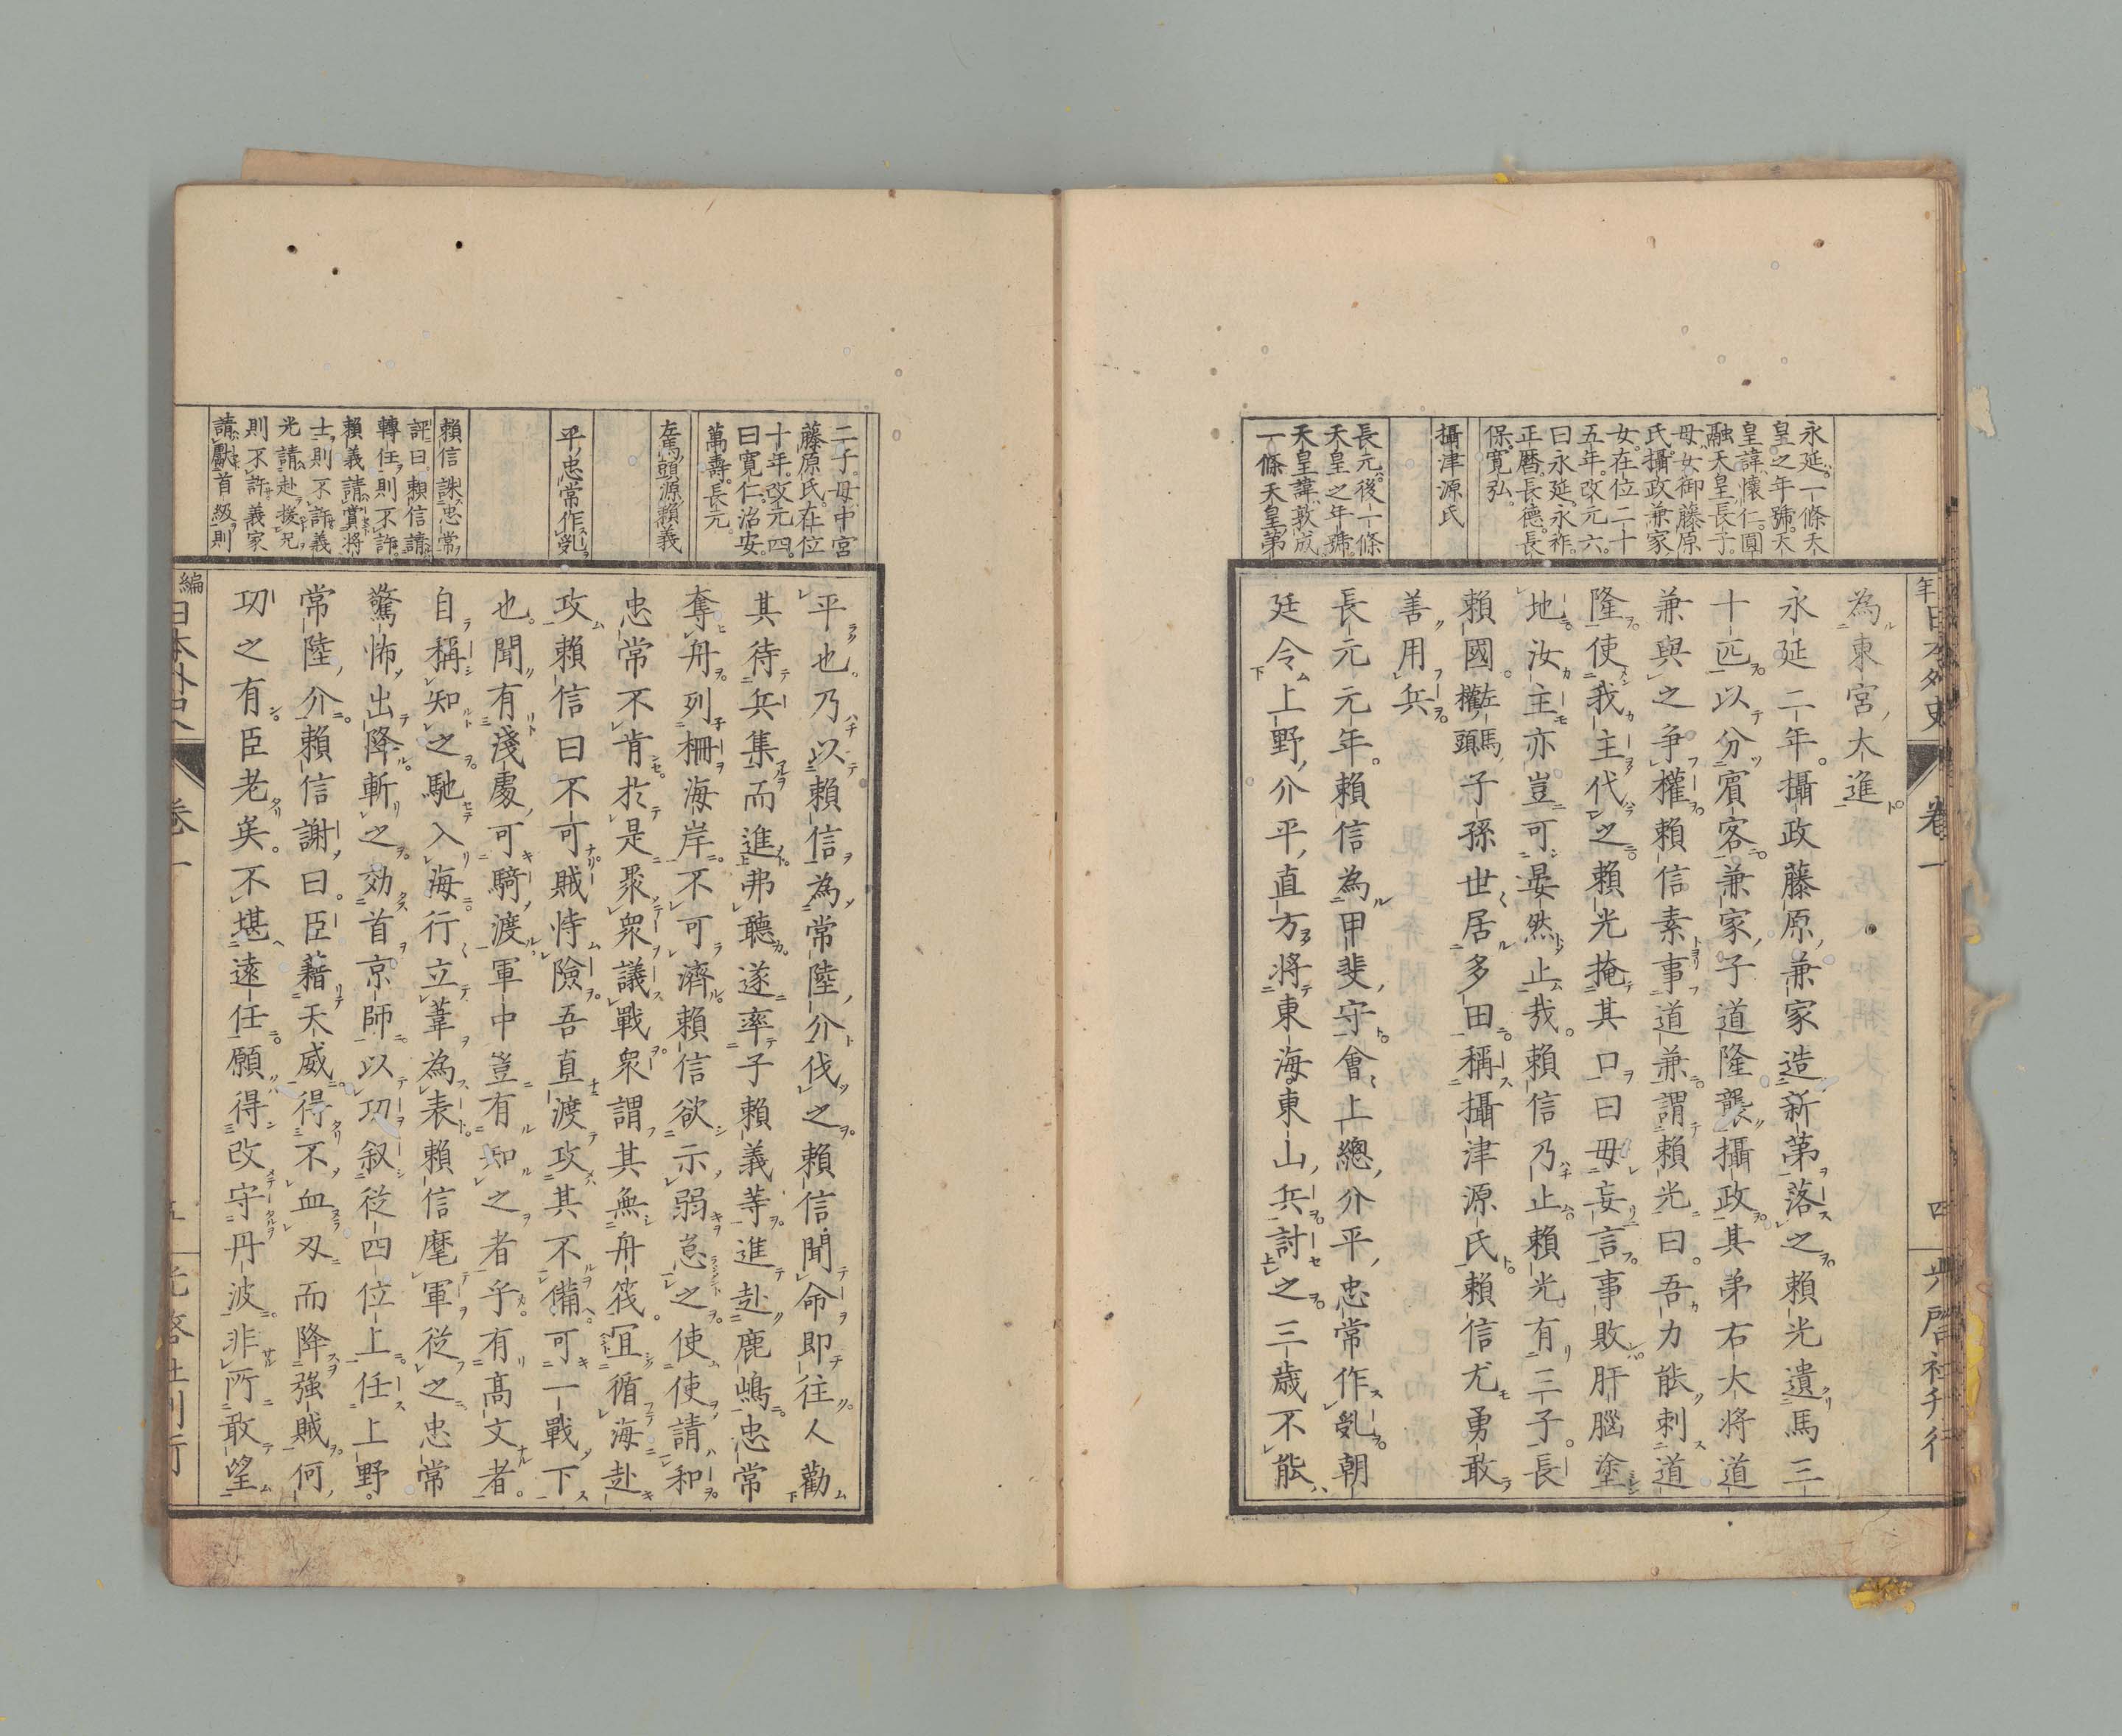 年日本外史 卷一 四 光啓社刋行
永延。一條天
皇之年號。天
皇諱懷仁。圓
融天皇長子。
母女御藤原
氏。攝政兼家
女。在位二十
五年。改元六。
曰永延。永祚。
正曆。長德。長
保。寛弘。
攝津源氏
長元。後一條
天皇之年號。
天皇諱敦成
一條天皇第
為東宮大進
永延二年。攝政藤原兼家造新第落之賴光遺馬三
十匹以分賓客兼家子道隆襲攝政其弟右大将道
兼與之争權賴信素事道兼謂賴光曰。吾力能刺道
隆使我主代之賴光掩其口曰毋妄言事敗肝腦塗
地汝主亦豈可晏然止哉。賴信乃止賴光有三子。長
賴國。左馬權頭子孫世居多田稱攝津源氏賴信尤勇敢
善用兵
長元元年。賴信為甲斐守會上總介平忠常作乱朝
廷令上野介平直方將東海東山兵討之三歳不能
二子。母中宮
藤原氏。在位
十年。改元四。
曰寛仁。治安。
萬壽。長元。
左馬頭源賴義
平忠常作乱
賴信誅忠常
評曰。賴信請
轉任則不許。
賴義請賞將
士則不許義
光請赴援兄
則不許義家
請獻首級則
平也乃以賴信為常陸介伐之賴信聞命即往人勸
其待兵集而進弗聽遂率子賴義等進赴鹿嶋忠常
奪舟列柵海岸不可濟賴信欲示弱怠之使使請和
忠常不肯於是聚衆議戰衆謂其無舟筏。宜循海赴
攻賴信曰不可賊恃險吾直渡攻其不備可一戰下
也。聞有淺處可騎渡軍中豈有知之者乎有髙文者。
自稱知之馳入海行立葦為表賴信麾軍從之忠常
驚怖出降斬之効首京師以功叙從四位上任上野
常陸介賴信謝曰。臣藉天威得不血刃而降强賊何
功之有臣老矣。不堪遠任願得改守丹波非所敢望
編日本外史 卷一 五 光啓社刋行